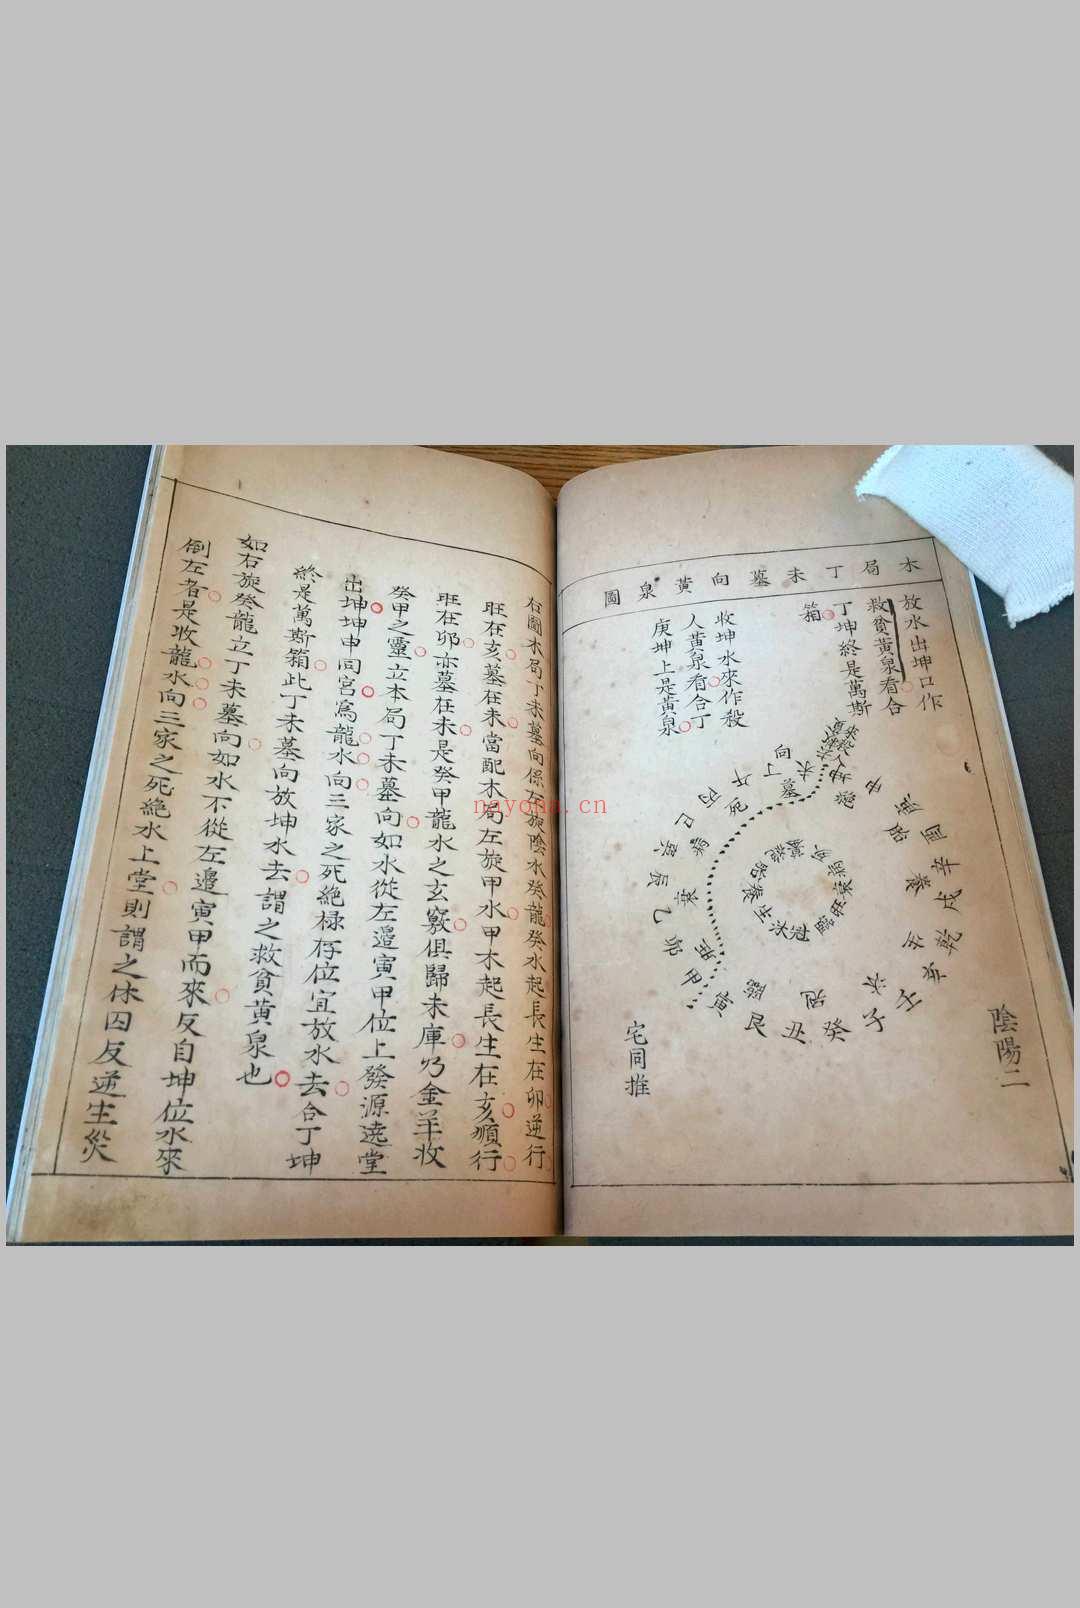 木局丁未墓向黃泉圖
放水出坤口作
救貧黃泉看合
丁坤終是萬斯
箱
收坤水來作殺
人黃泉看合丁
庚坤上是黃泉
向
丁未
墓
坤
午
丙
死
巳
病
巽
辰
衰
乙
卯
旺
甲
寅
臨
艮
丑
冠
癸
子
沐
壬
亥
生
乾
戌
養
辛
酉
胎
庚
申
絕
胎養生沐冠臨旺衰病死墓絕
宅同推
陰陽二
右圖木局丁未墓向係右旋陰水癸龍癸水起長生在卯逆行
旺在亥墓在未當配木局左旋甲水甲木起長生在亥順行
旺在卯亦墓在未是癸甲龍水之玄竅俱歸未庫乃金羊收
癸甲之靈立本局丁未墓向如水從左邉寅甲位上發源遶堂
出坤坤申同宮爲龍水向三家之死絕祿存位宜放水去合丁坤
終是萬斯箱此丁未墓向放坤水去謂之救貧黃泉也
如右旋癸龍立丁未墓向如水不從左邉寅甲而來反自坤位水來
倒左者是收龍水向三家之死絕水上堂則謂之休囚反逆生災
nayona.cn